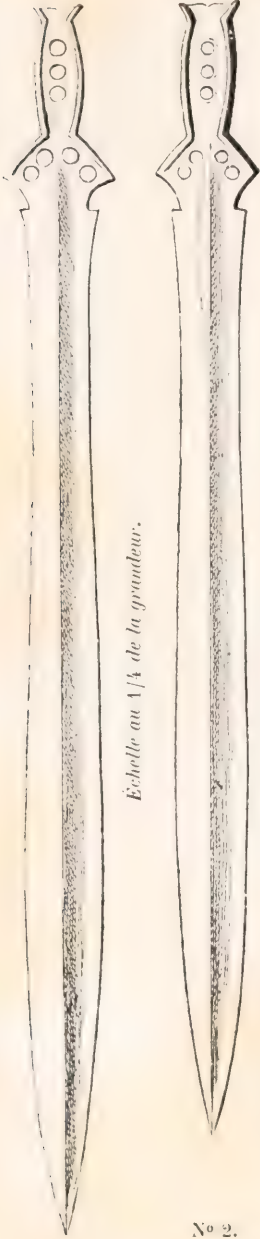 Échelle au 1/4 de la grandeur.
Nº 2.